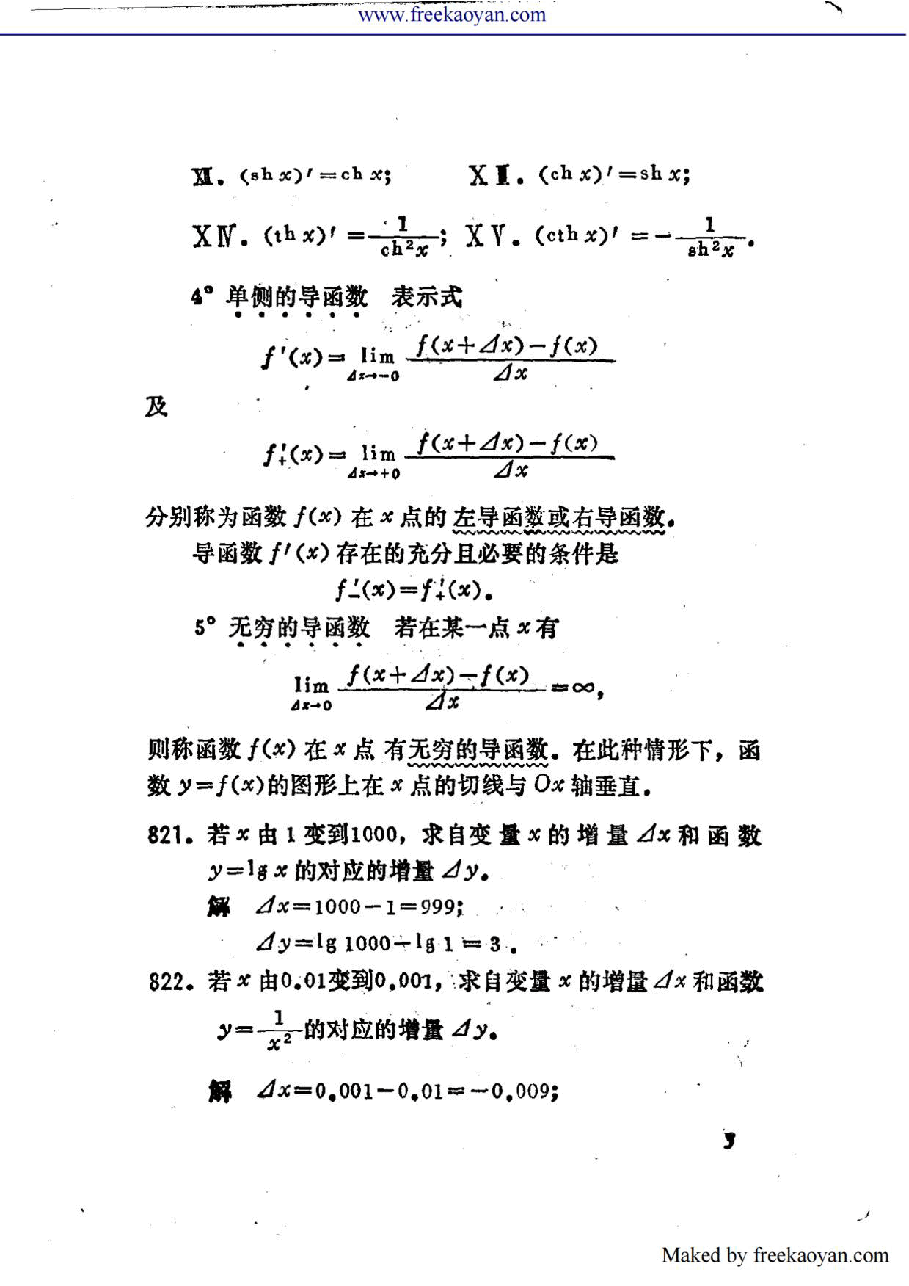 www.freekaoyan.com
Ⅻ. (sh x)′=ch x; XⅢ. (ch x)′=sh x;
XⅣ. (th x)′=1/ch²x; XⅤ. (cth x)′=-1/sh²x.
4° 单侧的导函数 表示式
f′(x)= lim Δx→-0 f(x+Δx)-f(x)/Δx
及
f′₊(x)= lim Δx→+0 f(x+Δx)-f(x)/Δx
分别称为函数 f(x) 在 x 点的左导函数或右导函数。
导函数 f′(x) 存在的充分且必要的条件是
f′₋(x)=f′₊(x)。
5° 无穷的导函数 若在某一点 x 有
lim Δx→0 f(x+Δx)-f(x)/Δx =∞,
则称函数 f(x) 在 x 点有无穷的导函数。在此种情形下，函
数 y=f(x)的图形上在 x 点的切线与 Ox 轴垂直。
821. 若 x 由 1 变到1000，求自变量 x 的增量 Δx 和函数
y=lg x 的对应的增量 Δy。
解 Δx=1000-1=999;
Δy=lg 1000-lg 1=3.
822. 若 x 由0.01变到0.001，求自变量 x 的增量 Δx 和函数
y=1/x²的对应的增量 Δy。
解 Δx=0.001-0.01=-0.009;
3
Maked by freekaoyan.com